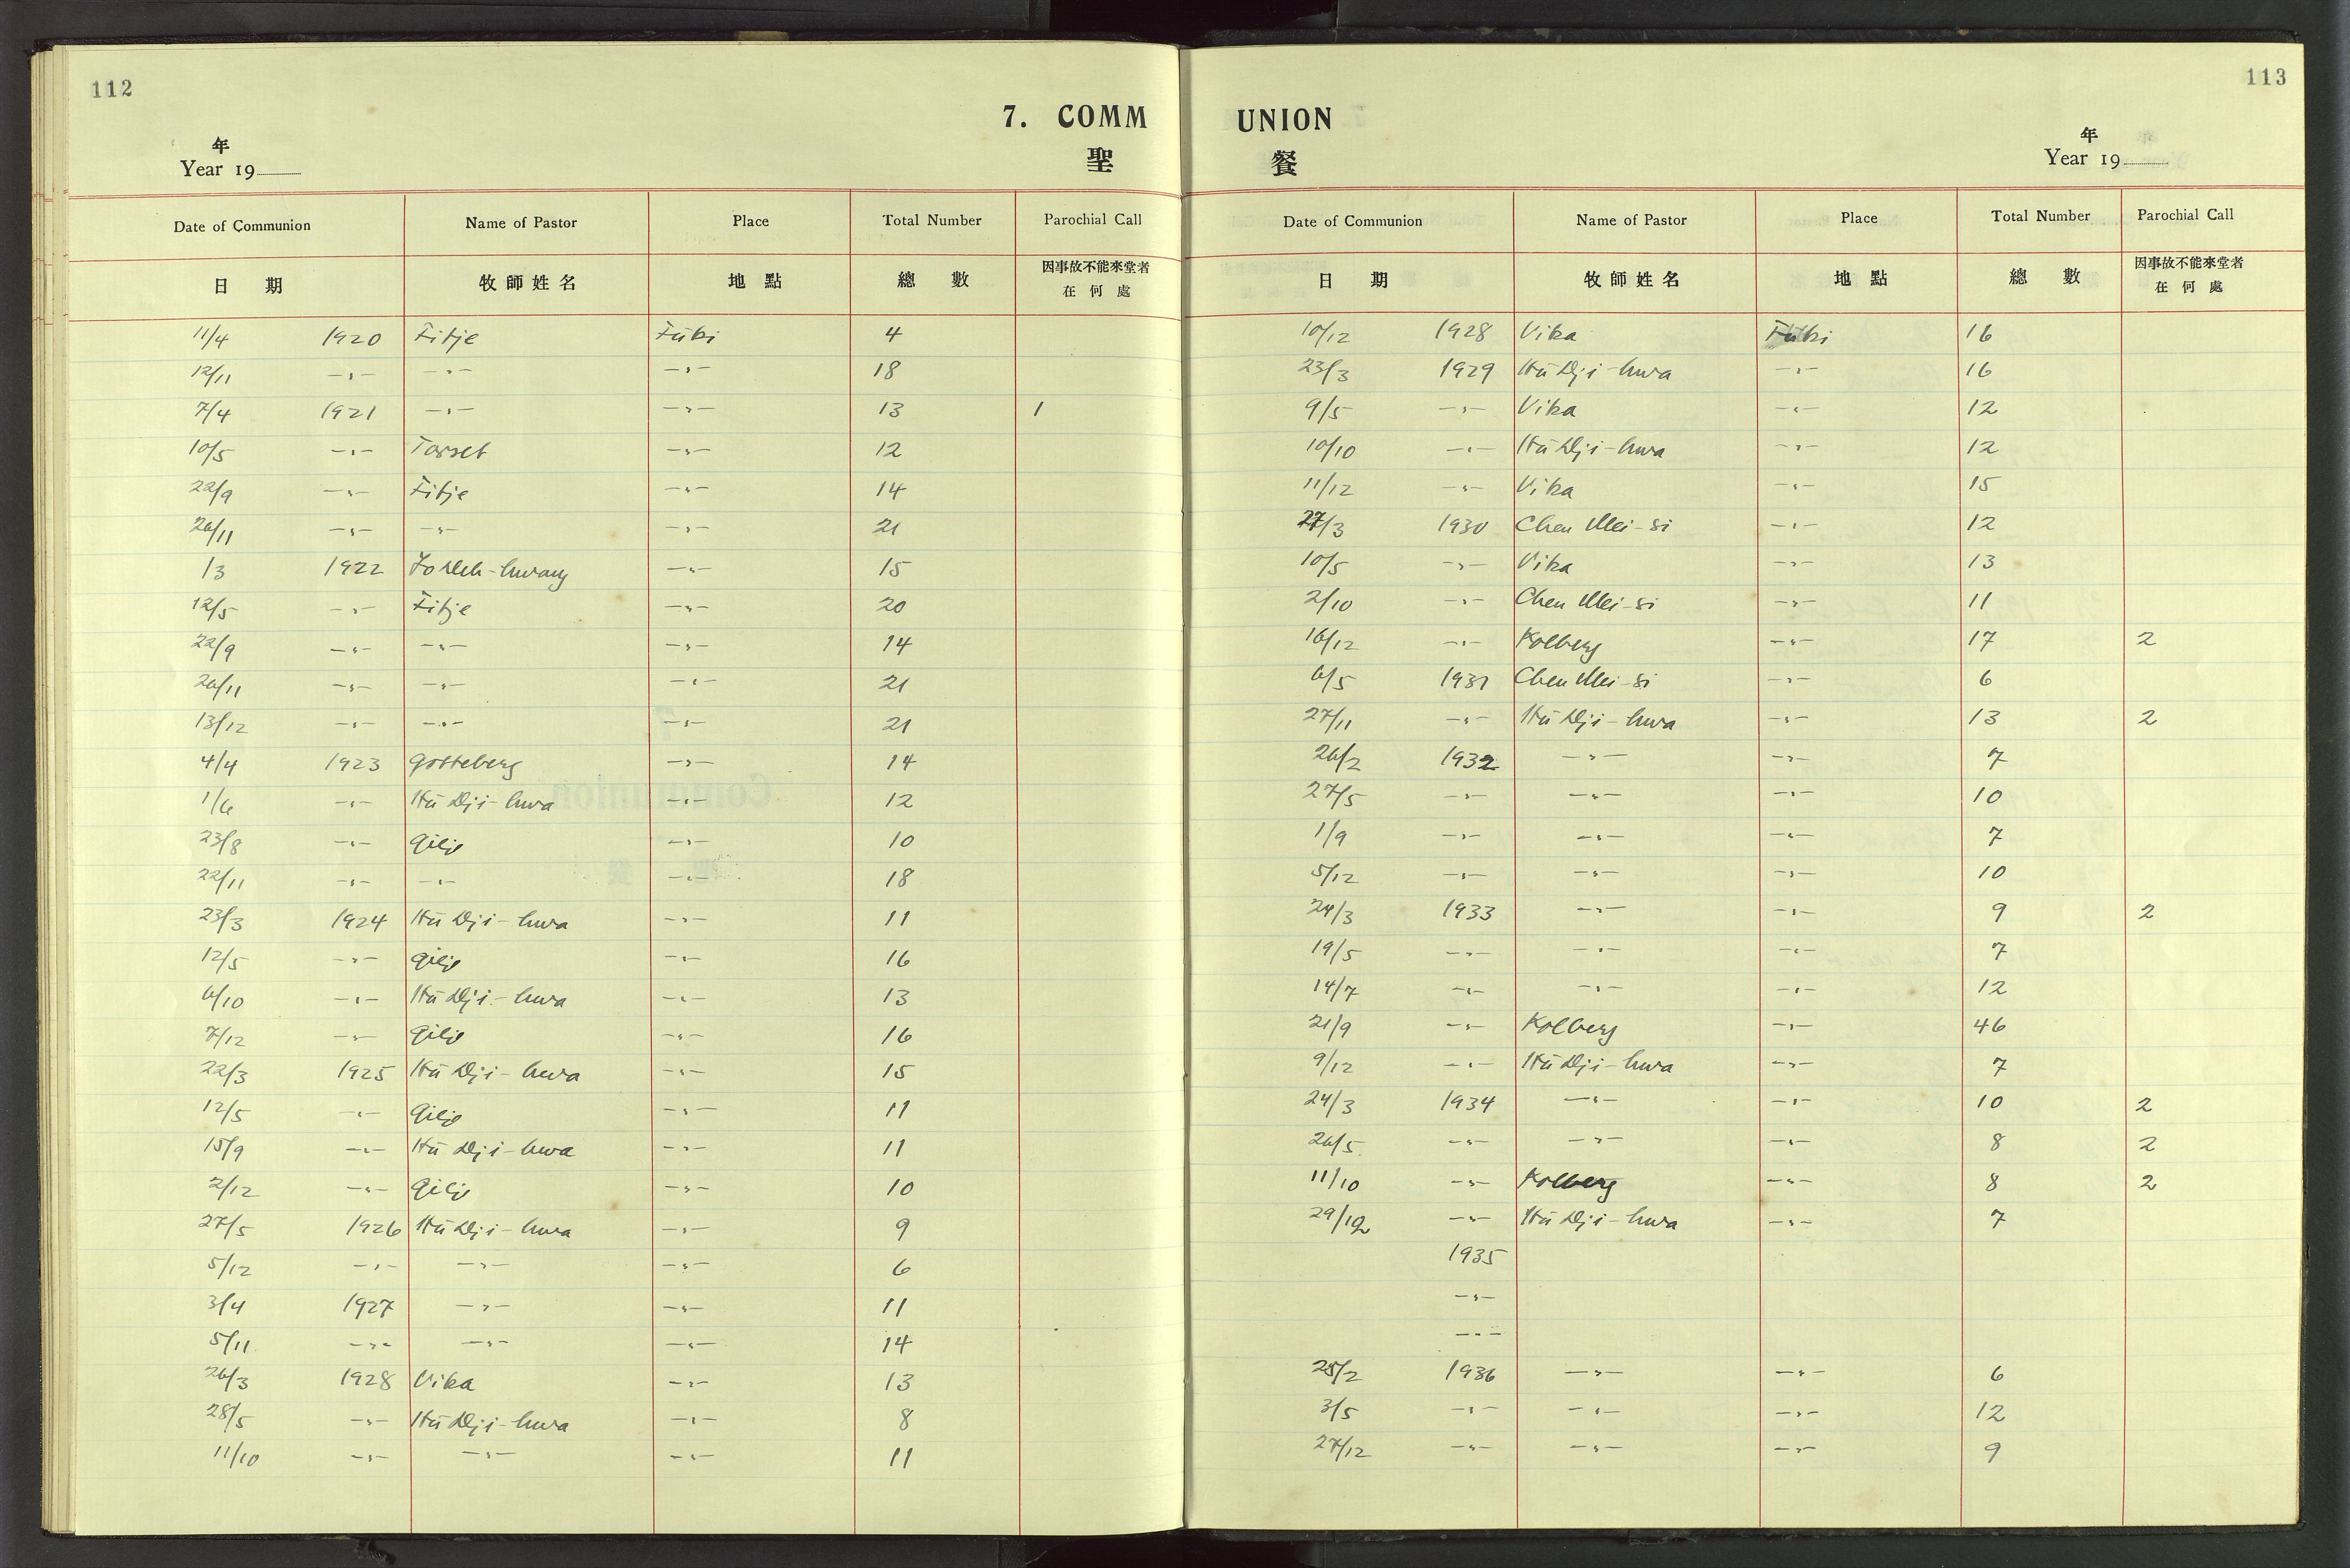 112
7. COMM
年
Year 19
聖
Date of Communion Name of Pastor Place Total Number Parochial Call
日 期 牧師姓名 地點 總數 因事故不能來堂者
在何處
11/4 1920 Fitje Füki 4
12/11 -"- -"- -"- 18
7/4 1921 -"- -"- 13 1
10/5 -"- Torset -"- 12
22/9 -"- Fitje -"- 14
26/11 -"- -"- -"- 21
1/3 1922 -"- 15
12/5 -"- Fitje -"- 20
22/9 -"- -"- -"- 14
26/11 -"- -"- -"- 21
13/12 -"- -"- -"- 21
4/4 1923 Gotteberg -"- 14
1/6 -"- Hü Dji-hwa -"- 12
23/8 -"- Gilje -"- 10
22/11 -"- -"- -"- 18
23/3 1924 Hü Dji-hwa -"- 11
12/5 -"- Gilje -"- 16
6/10 -"- Hü Dji-hwa -"- 13
7/12 -"- Gilje -"- 16
22/3 1925 Hü Dji-hwa -"- 15
12/5 -"- Gilje -"- 11
15/9 -"- Hü Dji-hwa -"- 11
2/12 -"- Gilje -"- 10
27/5 1926 Hü Dji-hwa -"- 9
5/12 -"- -"- -"- 6
3/4 1927 -"- -"- 11
5/11 -"- -"- -"- 14
26/3 1928 Vika -"- 13
28/5 -"- Hü Dji-hwa -"- 8
11/10 -"- -"- -"- 11
113
UNION
年
Year 19
餐
Date of Communion Name of Pastor Place Total Number Parochial Call
日 期 牧師姓名 地點 總數 因事故不能來堂者
在何處
10/12 1928 Vika Füki 16
23/3 1929 Hü Dji-hwa -"- 16
9/5 -"- Vika -"- 12
10/10 -"- Hü Dji-hwa -"- 12
11/12 -"- Vika -"- 15
27/3 1930 Chen Mei-si -"- 12
10/5 -"- Vika -"- 13
2/10 -"- Chen Mei-si -"- 11
16/12 -"- Kolberg -"- 17 2
6/5 1931 Chen Mei-si -"- 6
27/11 -"- Hü Dji-hwa -"- 13 2
26/2 1932 -"- -"- 7
27/5 -"- -"- -"- 10
1/9 -"- -"- -"- 7
5/12 -"- -"- -"- 10
24/3 1933 -"- -"- 9 2
19/5 -"- -"- -"- 7
14/7 -"- -"- -"- 12
21/9 -"- Kolberg -"- 46
9/12 -"- Hü Dji-hwa -"- 7
24/3 1934 -"- -"- 10 2
26/5 -"- -"- -"- 8 2
11/10 -"- Kolberg -"- 8 2
29/12 -"- Hü Dji-hwa -"- 7
1935
-"-
-"-
25/2 1936 -"- -"- 6
3/5 -"- -"- -"- 12
27/12 -"- -"- -"- 9